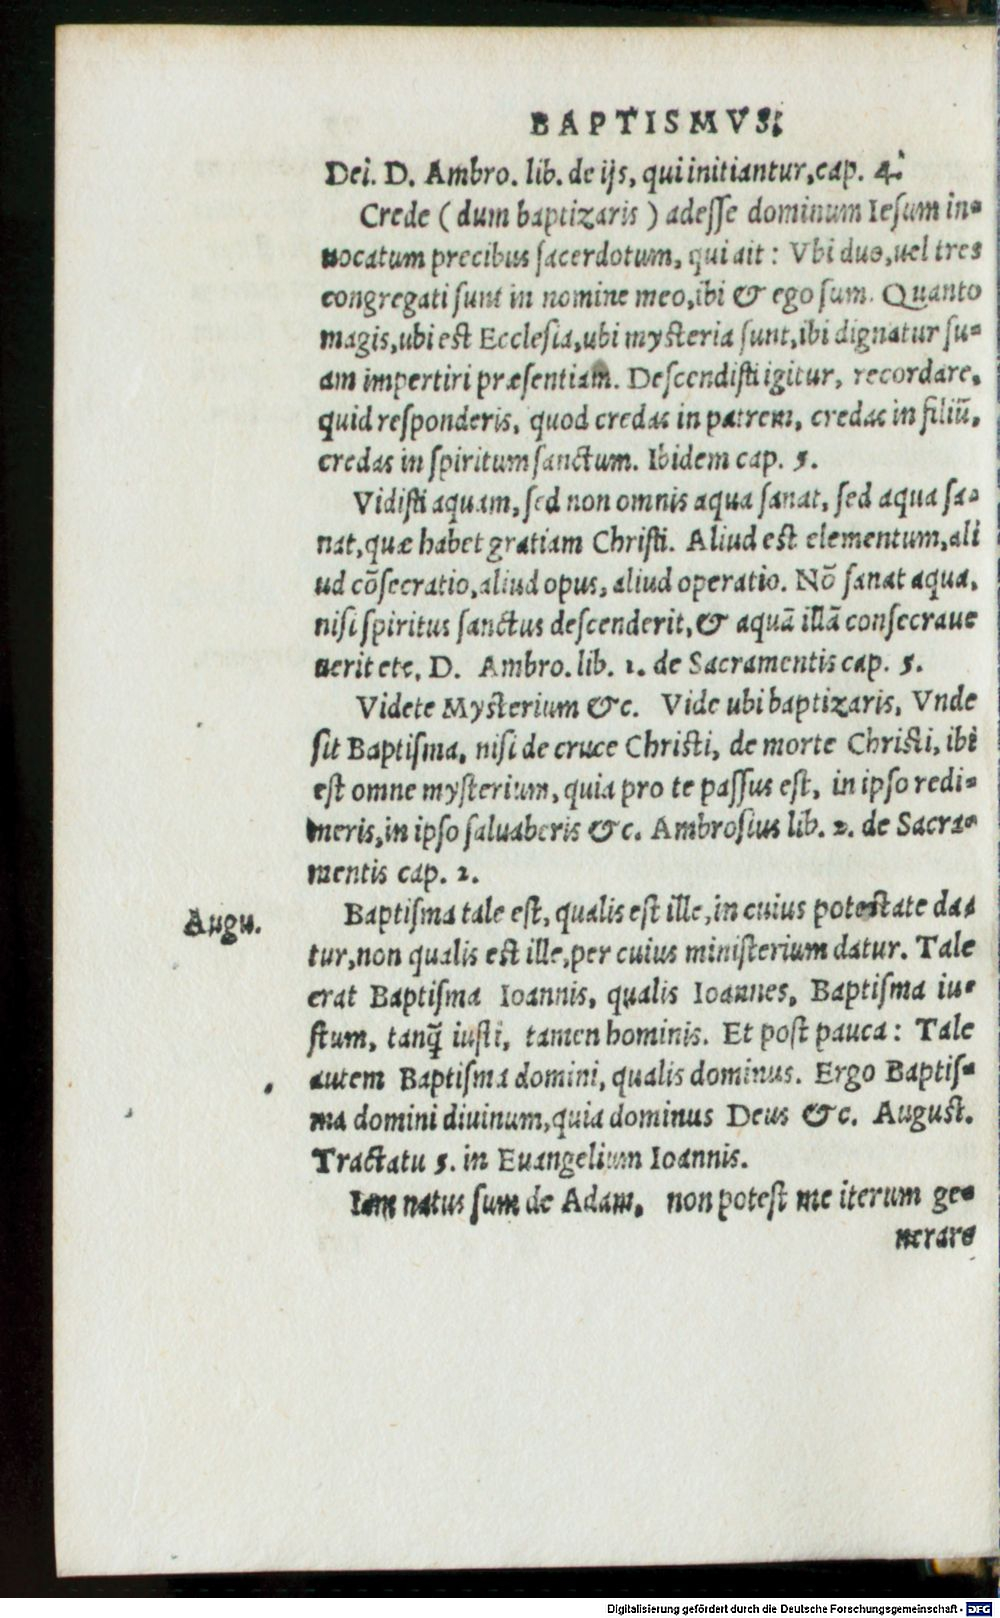 BAPTISMVS.
Dei. D. Ambro. lib. de ijs, qui initiantur, cap. 4.
Crede ( dum baptizaris ) adeſſe dominum Ieſum in-
uocatum precibus ſacerdotum, qui ait : Vbi duo, uel tres
congregati ſunt in nomine meo, ibi & ego ſum. Quanto
magis, ubi est Eccleſia, ubi mysteria ſunt, ibi dignatur ſu-
am impertiri præſentiam. Deſcendiſti igitur, recordare,
quid reſponderis, quod credas in patrem, credas in filiū,
credas in ſpiritum ſanctum. Ibidem cap. 5.
Vidiſti aquam, ſed non omnis aqua ſanat, ſed aqua ſa-
nat, quæ habet gratiam Chriſti. Aliud est elementum, ali
ud cōſecratio, aliud opus, aliud operatio. Nō ſanat aqua,
niſi ſpiritus ſanctus deſcenderit, & aquā illā conſecraue
uerit etc, D. Ambro. lib. 1. de Sacramentis cap. 5.
Videte Mysterium &c. Vide ubi baptizaris, Vnde
ſit Baptiſma, niſi de cruce Christi, de morte Christi, ibi
est omne myſterium, quia pro te paſſus eſt, in ipſo redi-
meris, in ipſo ſaluaberis &c. Ambroſius lib. 2. de Sacra-
mentis cap. 2.
Augu.
Baptiſma tale eſt, qualis eſt ille, in cuius potestate da-
tur, non qualis est ille, per cuius miniſterium datur. Tale
erat Baptiſma Ioannis, qualis Ioannes, Baptiſma iu-
ſtum, tanq̃ iuſti, tamen hominis. Et poſt pauca : Tale
autem Baptiſma domini, qualis dominus. Ergo Baptiſ-
ma domini diuinum, quia dominus Deus &c. August.
Tractatu 5. in Euangelium Ioannis.
Iam natus ſum de Adam, non poteſt me iterum ge-
nerare
Digitalisierung gefördert durch die Deutsche Forschungsgemeinschaft - DFG